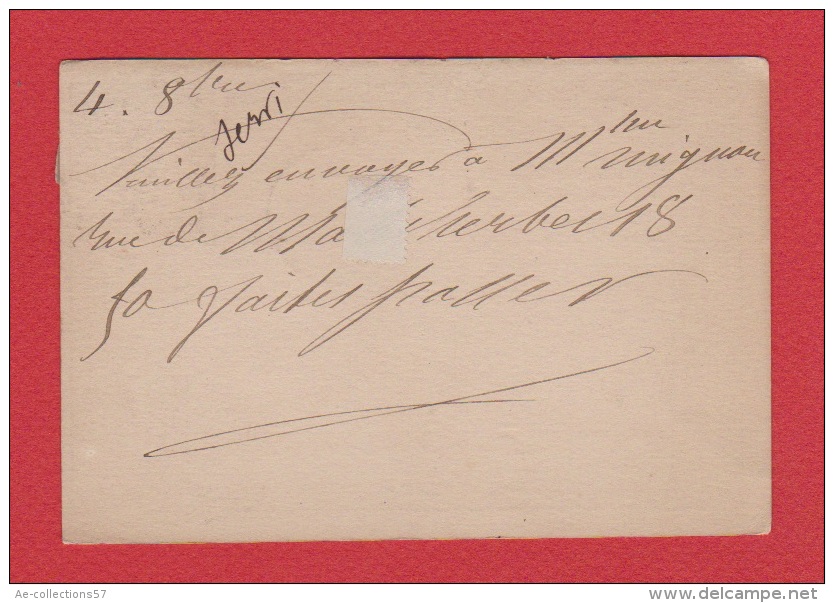 4. 8bre
Veuillez envoyer à Mme mignon
rue de Malesherbes 18
50 faites passer
Ae-collections57
delcampe.net